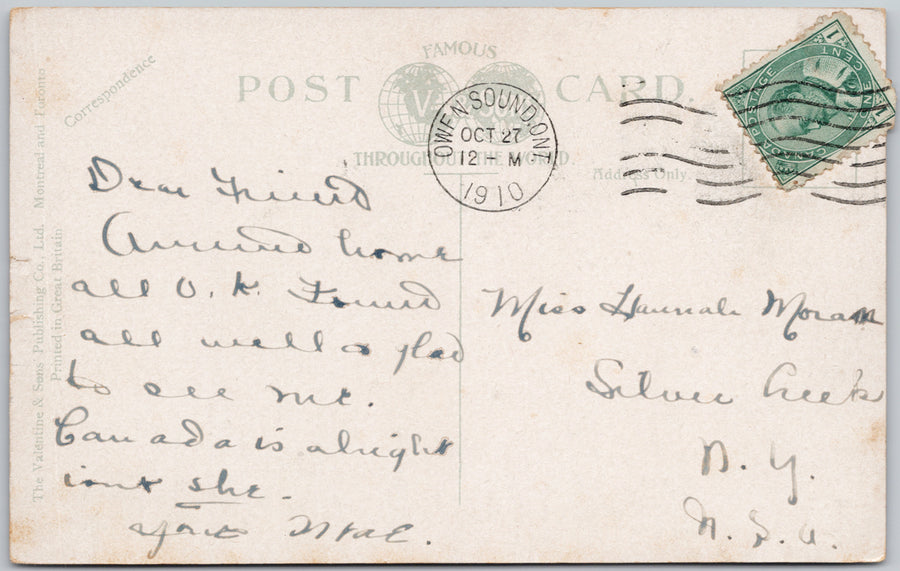 FAMOUS
POST CARD.
THROUGHOUT THE WORLD.
Correspondence
Address Only.
OWEN SOUND, ONT.
OCT 27
12 M
1910
CANADA POSTAGE
ONE CENT
1 1
The Valentine & Sons Publishing Co., Ltd. Montreal and Toronto
Printed in Great Britain
Dear Friend
Arrived home
all O.K. Found
all well & glad
to see me.
Canada is alright
isnt she.
Yours Mae.
Miss Hannah Moran
Silver Creek
N. Y.
U. S. A.